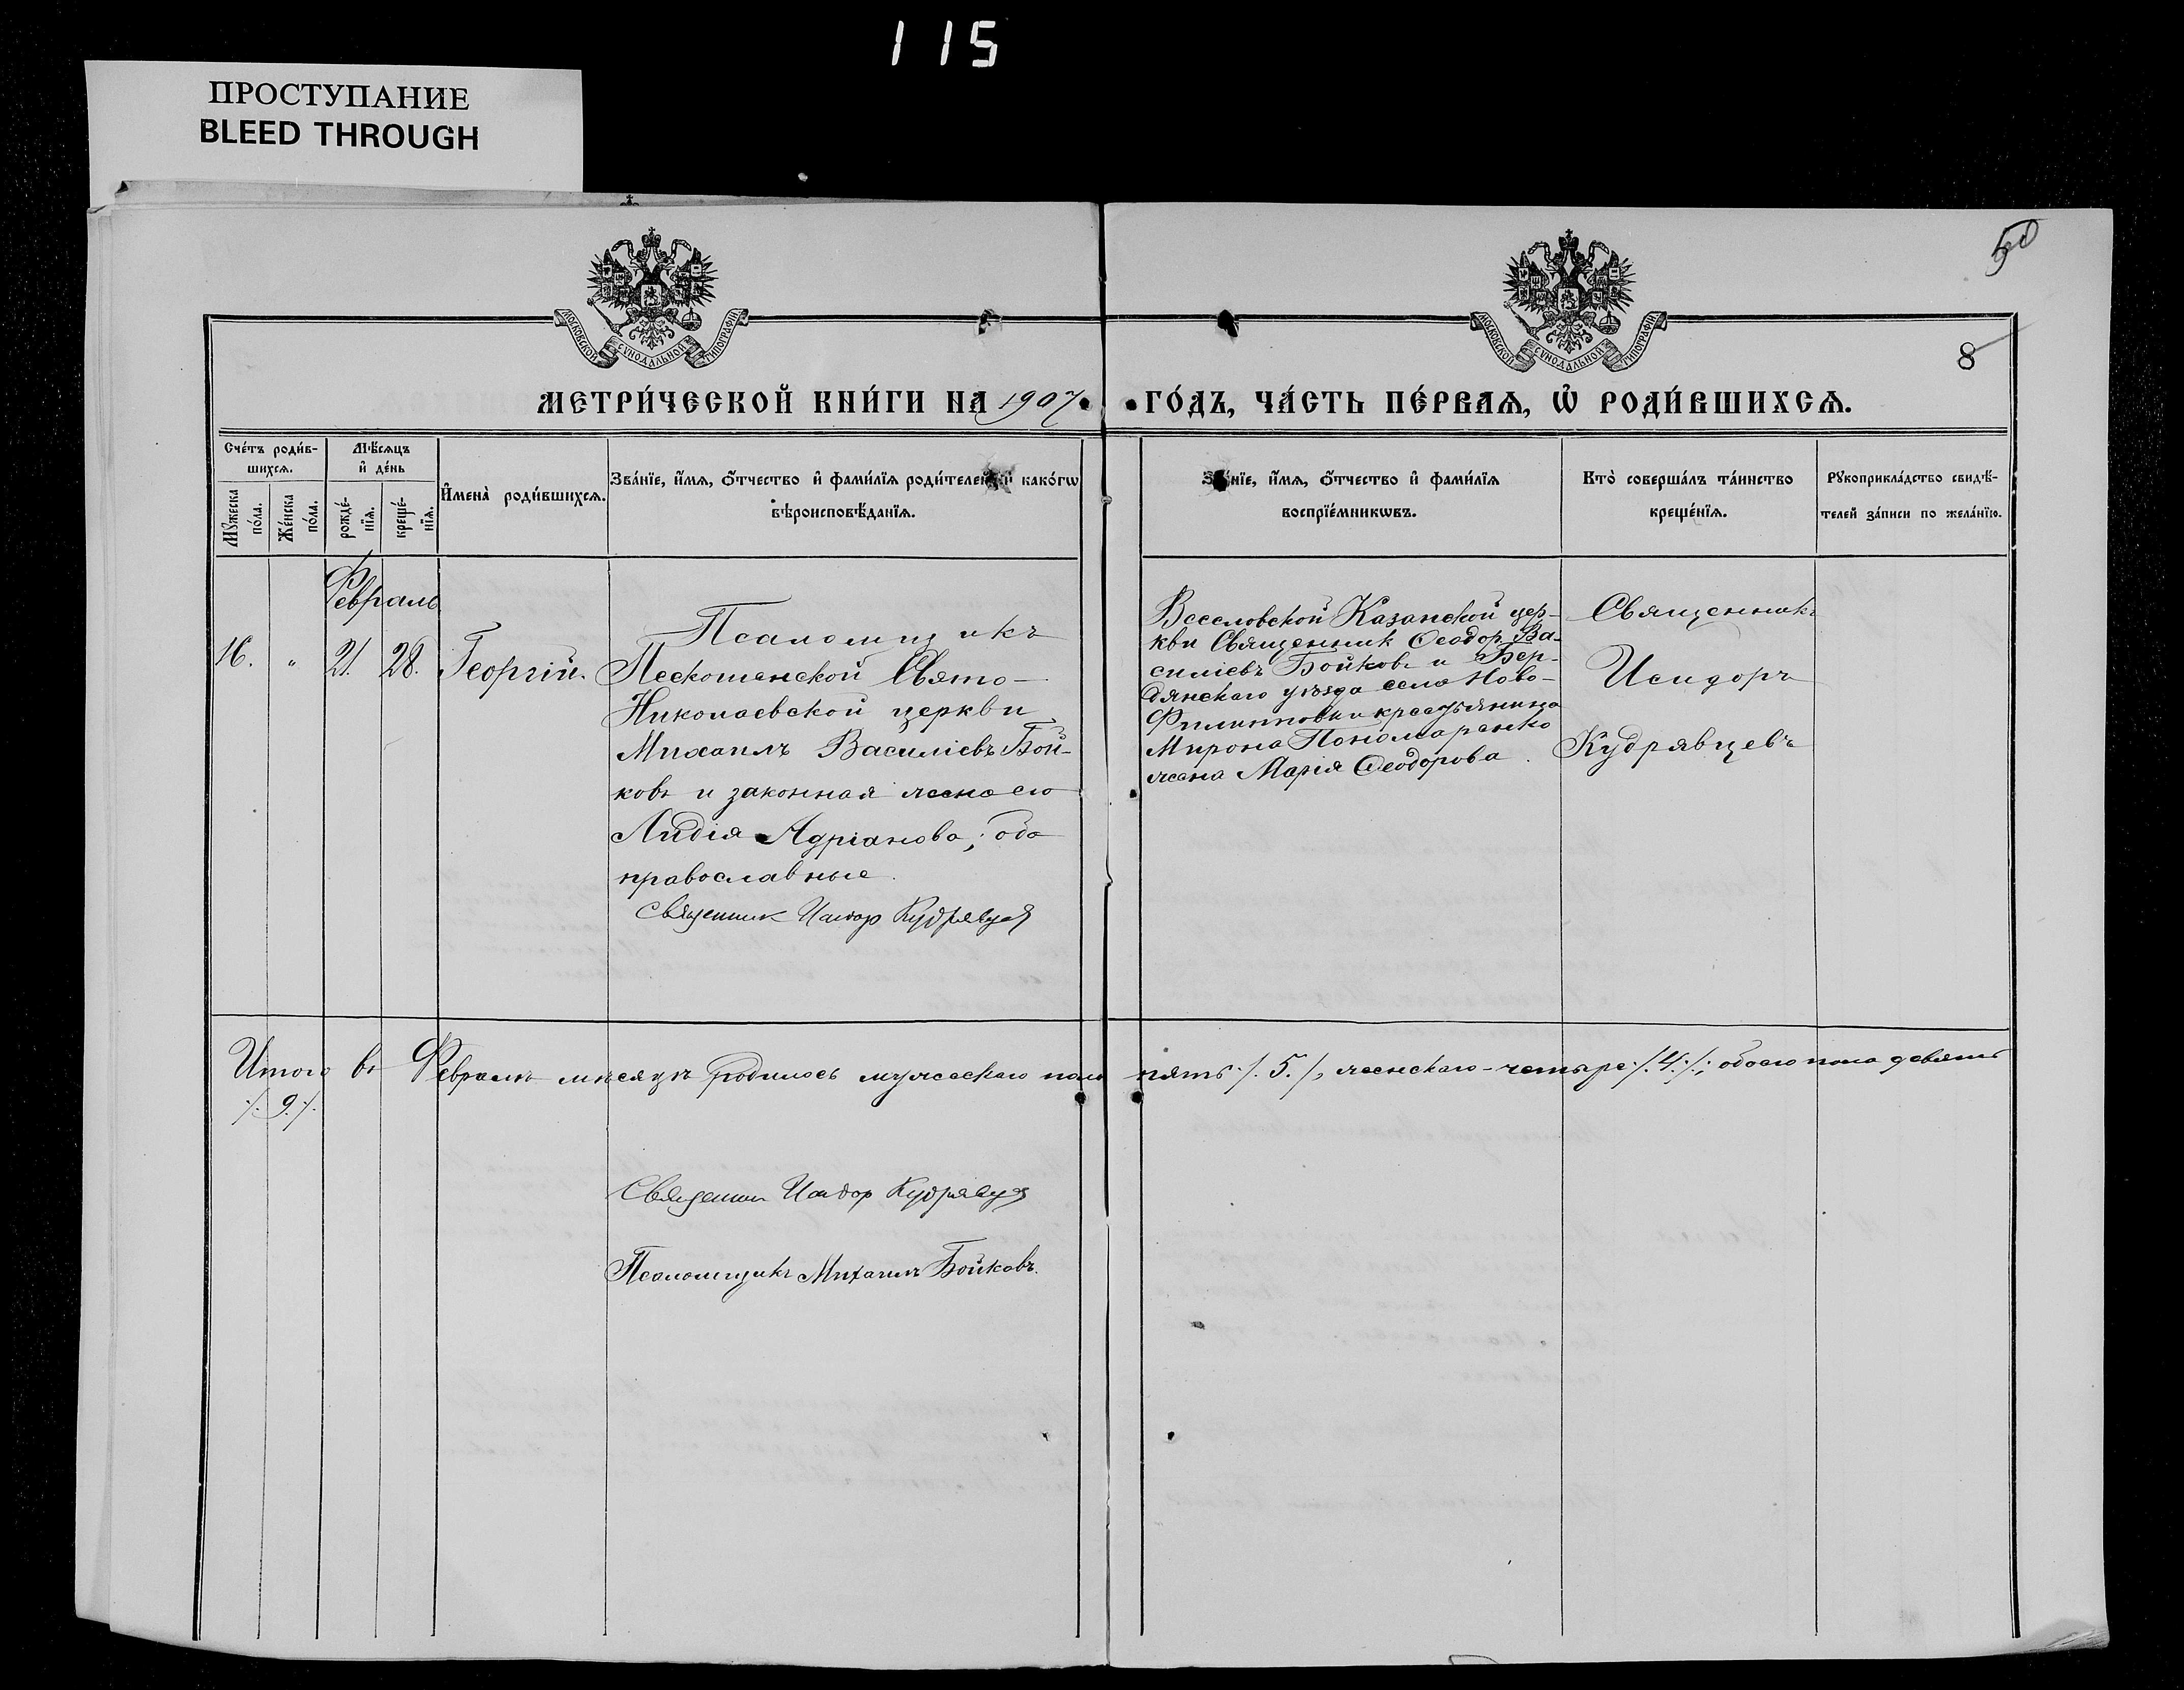 115
ПРОСТУПАНИЕ
BLEED THROUGH
50
МОСКОВСКОЙ СѴНОДАЛЬНОЙ ТИПОГРАФІИ
МОСКОВСКОЙ СѴНОДАЛЬНОЙ ТИПОГРАФІИ
8
МЕТРИ́ЧЕСКОЙ КНИ́ГИ НА 1907
ГО́ДЪ, ЧА́СТЬ ПЕ́РВАѦ, Ѿ РОДИ́ВШИХСѦ.
Сче́тъ роди́в-
шихсѧ.
Мꙋ́жеска
по́ла.
Же́нска
по́ла.
Мѣ́сѧцъ
и҆ де́нь
рожде́-
нїѧ.
креще́-
нїѧ.
И҆мена̀ роди́вшихсѧ.
Зва́нїе, и҆́мѧ, ѻ҆́тчество и҆ фами́лїѧ роди́телей и҆ како́гѡ
вѣроисповѣ́данїѧ.
Зва́нїе, и҆́мѧ, ѻ҆́тчество и҆ фами́лїѧ
воспрїе́мникѡвъ.
Кто̀ соверша́лъ та́инство
креще́нїѧ.
Рꙋкоприкла́дство свидѣ́-
телей за́писи по жела́нїю.
Февраль
16. " 21. 28. Георгій.
Псаломщикъ
Пескошанской Свято-
Николаевской церкви
Михаилъ Василіевъ Бой-
ковъ и законная жена его
Лидія Адріанова; оба
православные.
Священник Исидор Кудрявцев
Веселовской Казанской цер-
кви Священник Ѳеодор Ва-
силіевъ Бойковъ и Бер-
дянскаго уѣзда села Ново-
Филипповки крестьянина
Мирона Пономаренко
жена Марія Ѳеодорова.
Священникъ
Исидоръ
Кудрявцевъ
Итого въ Февралѣ мѣсяцѣ родилось мужескаго пола пять ./.5./., женскаго - четыре ./.4./.; обоего пола девять
./.9./.
Священник Исидор Кудрявцев
Псаломщикъ Михаилъ Бойковъ.